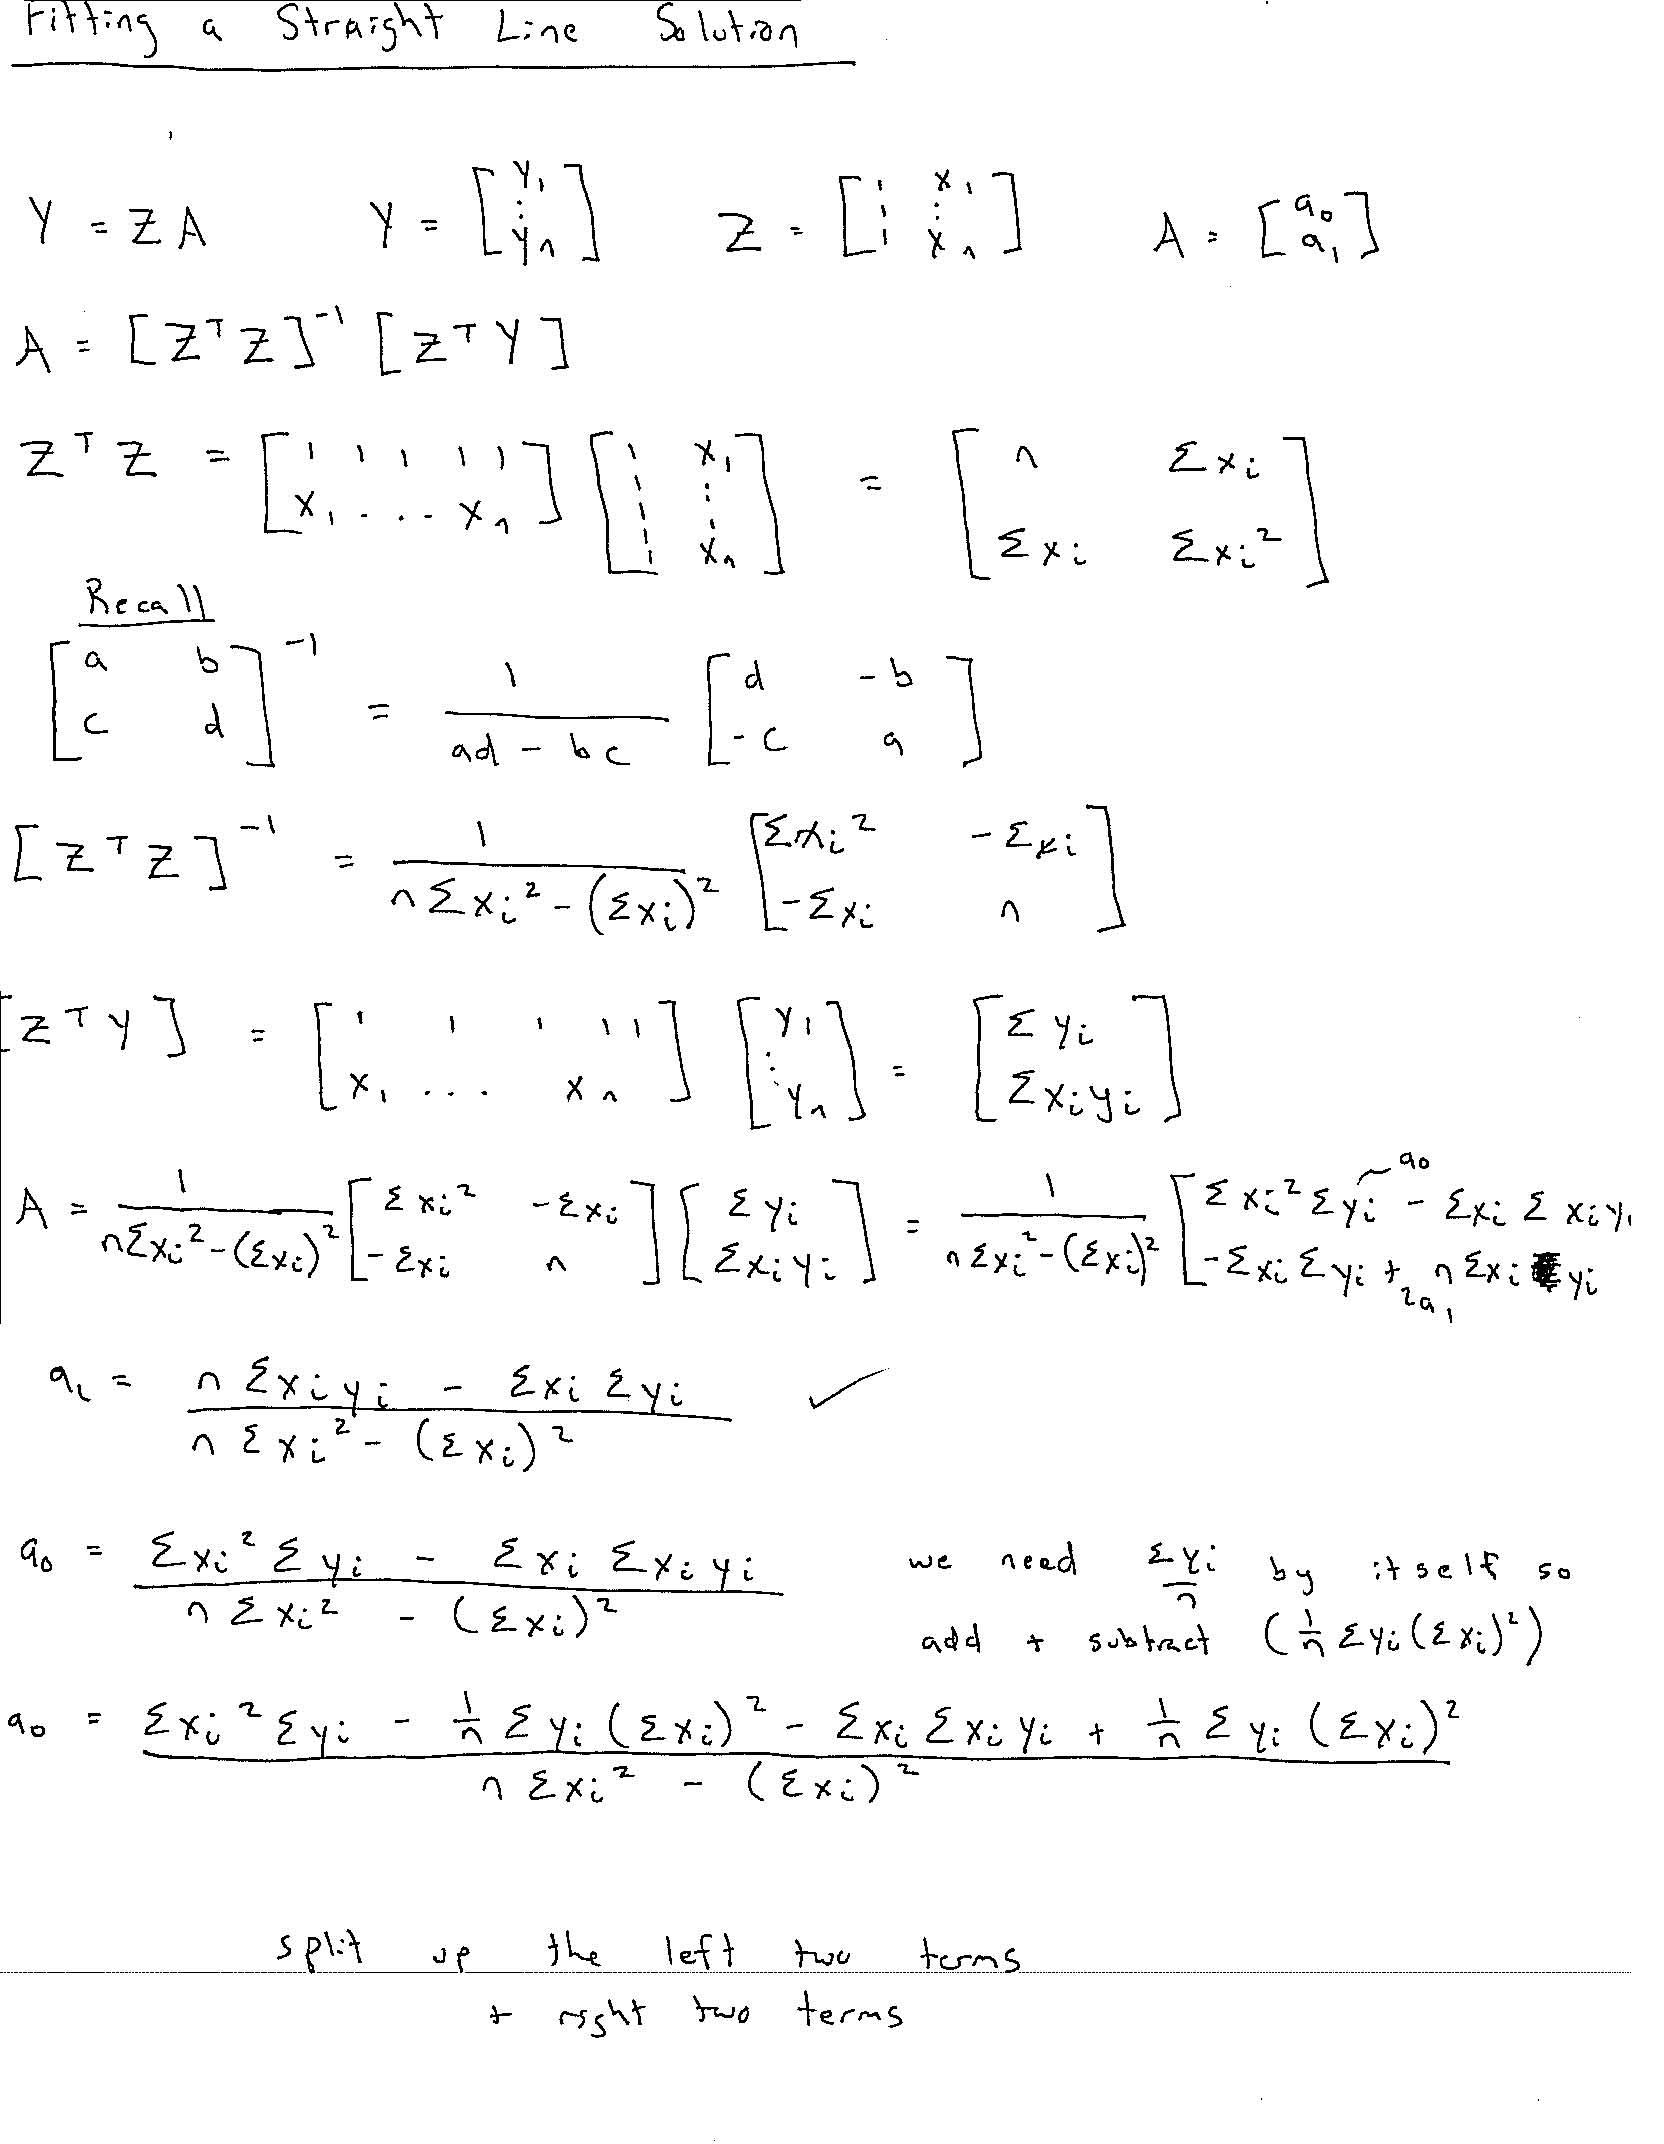 Fitting a Straight Line Solution
Y = Z A    Y = [y₁ ⋮ yₙ]    Z = [1 x₁; ⋮ ⋮; 1 xₙ]    A = [a₀; a₁]
A = [ZᵀZ]⁻¹ [ZᵀY]
ZᵀZ = [1 1 1 1 1; x₁ ... xₙ] [1 x₁; ⋮ ⋮; 1 xₙ] = [n Σxᵢ; Σxᵢ Σxᵢ²]
Recall
[a b; c d]⁻¹ = 1/(ad - bc) [d -b; -c a]
[ZᵀZ]⁻¹ = 1/(nΣxᵢ² - (Σxᵢ)²) [Σxᵢ² -Σxᵢ; -Σxᵢ n]
[ZᵀY] = [1 1 1 1 1; x₁ ... xₙ] [y₁ ⋮ yₙ] = [Σyᵢ; Σxᵢyᵢ]
A = 1/(nΣxᵢ² - (Σxᵢ)²) [Σxᵢ² -Σxᵢ; -Σxᵢ n] [Σyᵢ; Σxᵢyᵢ] = 1/(nΣxᵢ² - (Σxᵢ)²) [Σxᵢ²Σyᵢ - ΣxᵢΣxᵢyᵢ; -ΣxᵢΣyᵢ + nΣxᵢyᵢ] a₀ a₁
a₁ = (nΣxᵢyᵢ - ΣxᵢΣyᵢ)/(nΣxᵢ² - (Σxᵢ)²) ✓
a₀ = (Σxᵢ²Σyᵢ - ΣxᵢΣxᵢyᵢ)/(nΣxᵢ² - (Σxᵢ)²)    we need Σyᵢ/n by itself so
add + subtract (1/n Σyᵢ(Σxᵢ)²)
a₀ = (Σxᵢ²Σyᵢ - 1/n Σyᵢ(Σxᵢ)² - ΣxᵢΣxᵢyᵢ + 1/n Σyᵢ(Σxᵢ)²)/(nΣxᵢ² - (Σxᵢ)²)
split up the left two terms
+ right two terms